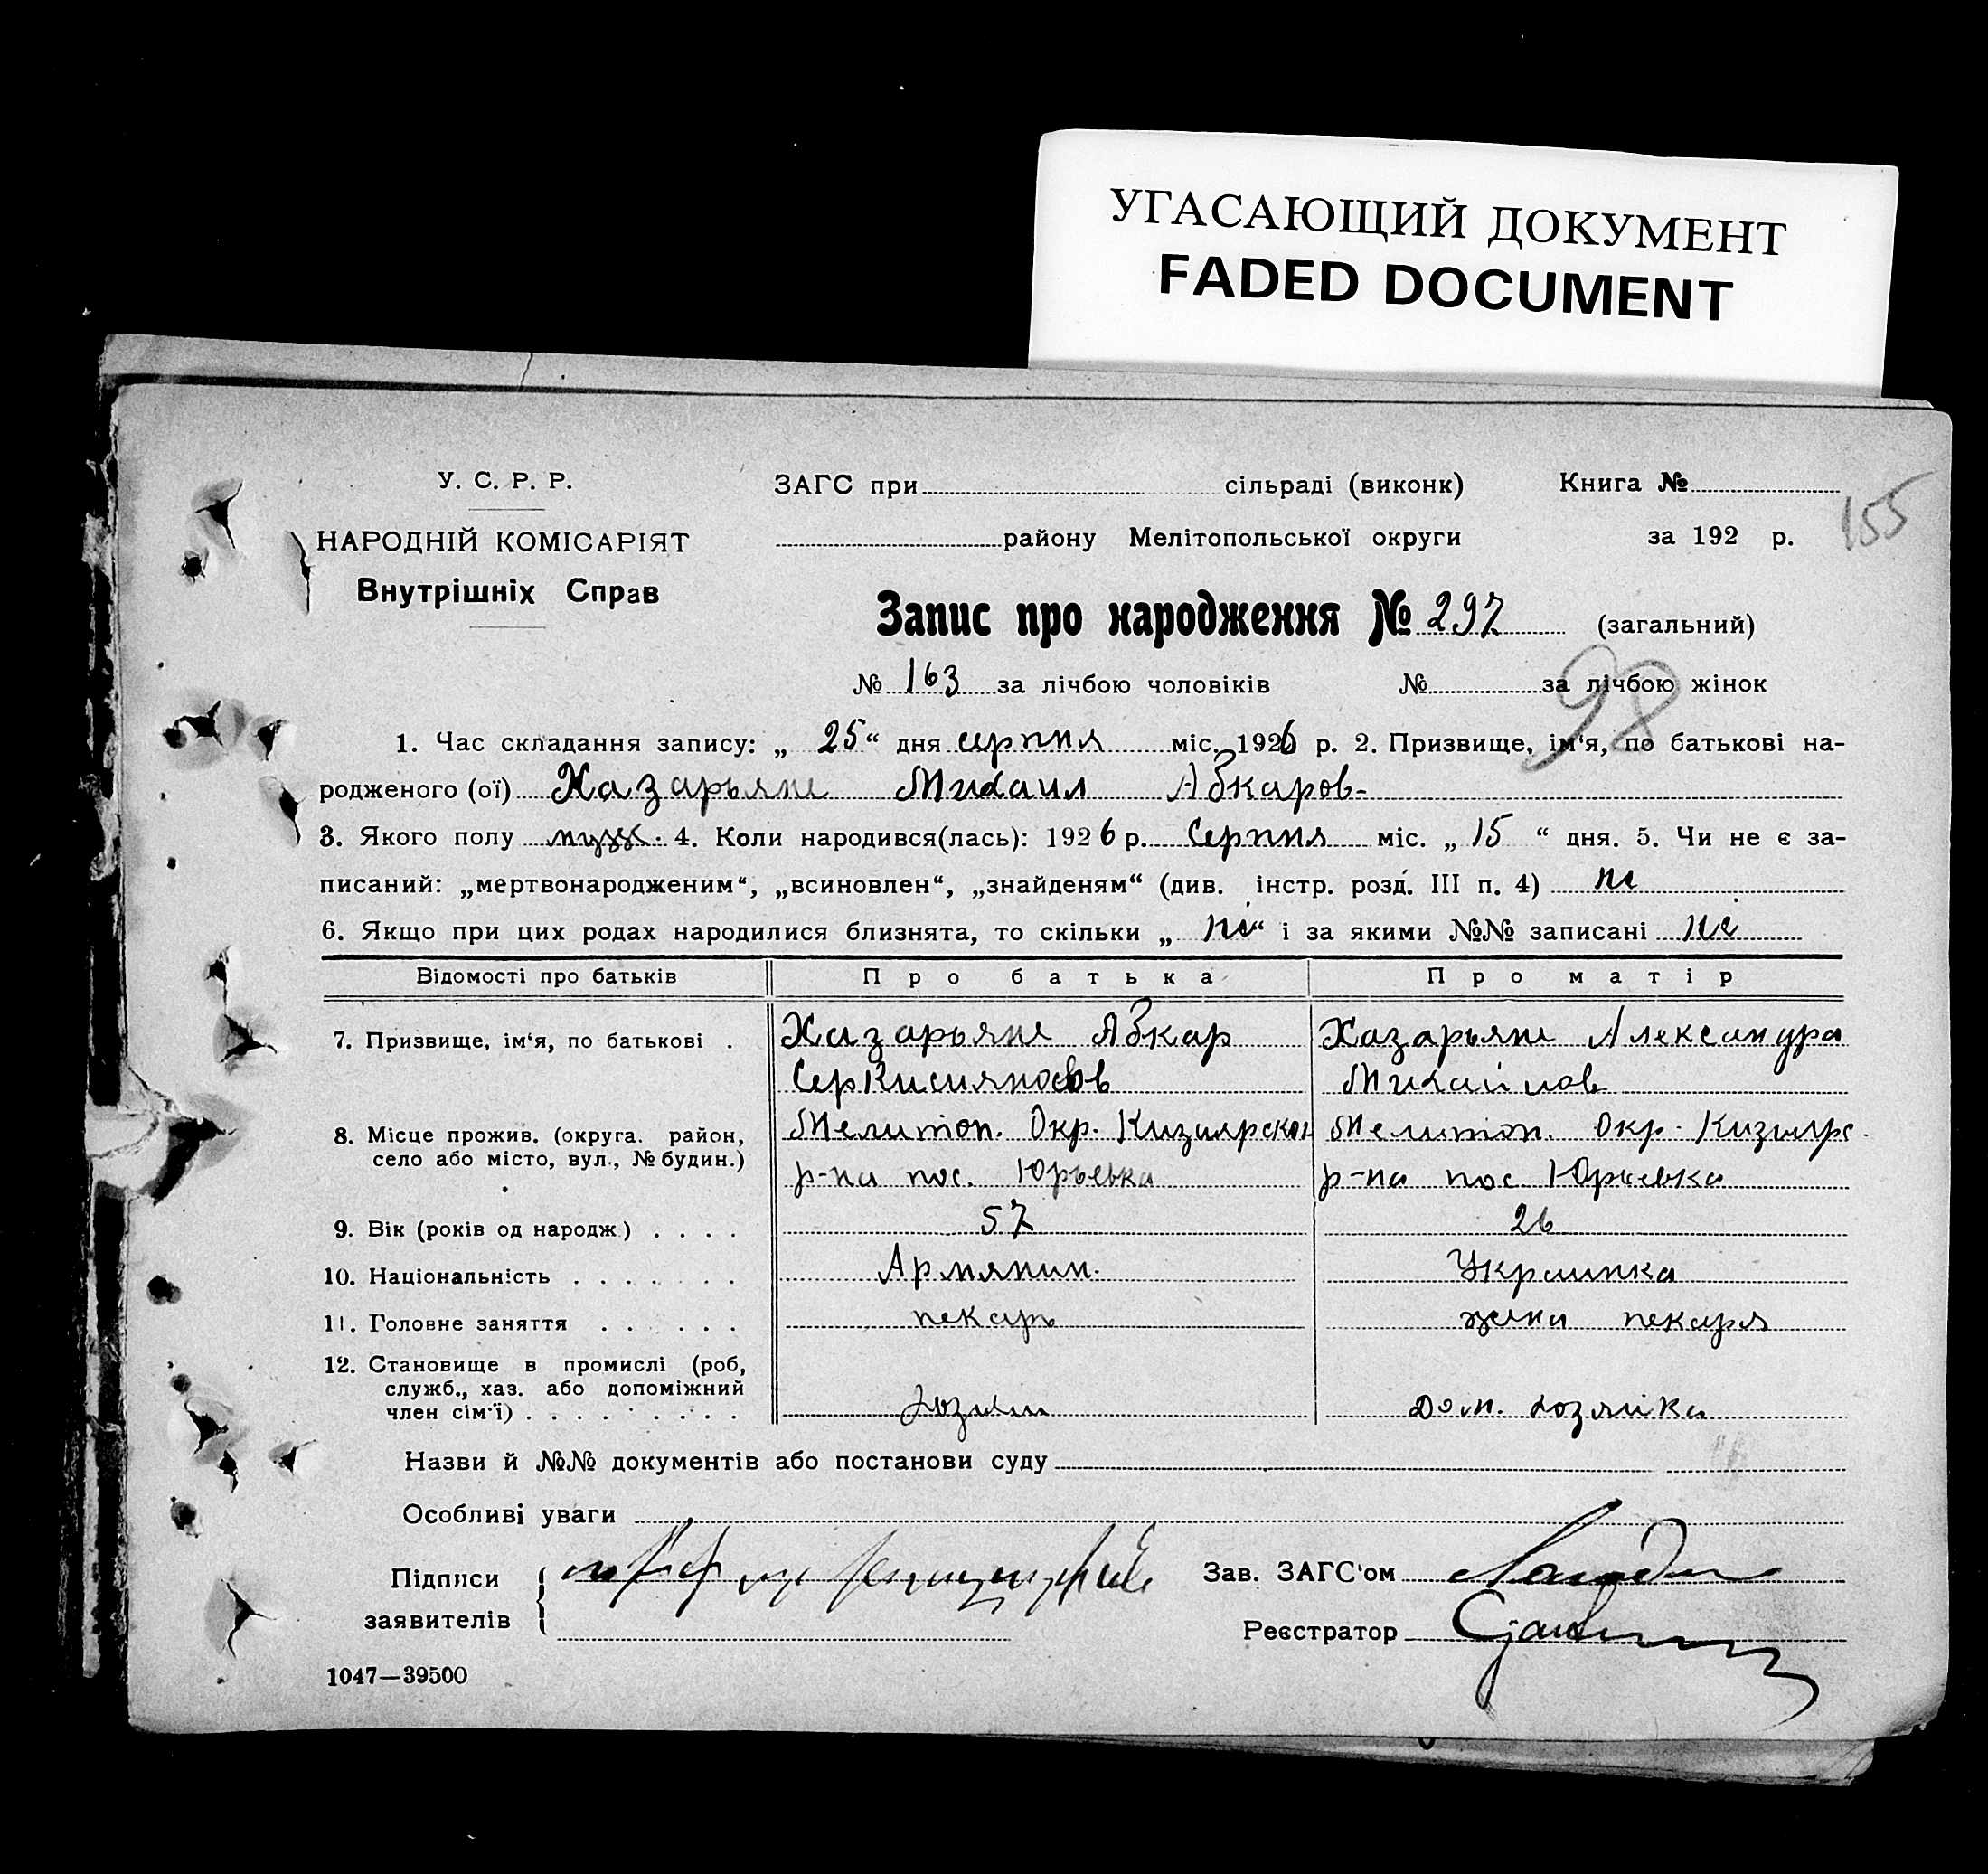 УГАСАЮЩИЙ ДОКУМЕНТ
FADED DOCUMENT
У. С. Р. Р.
НАРОДНІЙ КОМІСАРІЯТ
Внутрішніх Справ
ЗАГС при сільраді (виконк) Книга №
155
району Мелітопольської округи за 192 р.
Запис про народження № 297 (загальний)
№ 163 за лічбою чоловіків № за лічбою жінок
98
1. Час складання запису: „ 25 “ дня серпня міс. 1926 р. 2. Призвище, ім‘я, по батькові на-
родженого (ої) Хазарьянс Михаил Абкаров-
3. Якого полу муж. 4. Коли народився(лась): 1926 р. Серпня міс. „ 15 “ дня. 5. Чи не є за-
писаний: „мертвонародженим“, „всиновлен“, „знайденям“ (див. інстр. розд. III п. 4) ні
6. Якщо при цих родах народилися близнята, то скільки „ ні “ і за якими №№ записані ні
Відомості про батьків Про батька Про матір
7. Призвище, ім‘я, по батькові . Хазарьянс Абкар Хазарьянс Александра
Михайлов
8. Місце прожив. (округа. район, Мелитоп. Окр. Кизиярског Мелитоп. Окр. Кизиярс.
село або місто, вул., № будин.) р-на пос. Юрьевка р-на пос Юрьевка
9. Вік (років од народж.) . . . . 57 26
10. Національність . . . . . . . Армянин. Украинка
11. Головне заняття . . . . . . пекарь жена пекаря
12. Становище в промислі (роб,
служб., хаз. або допоміжний
член сім‘ї) . . . . . . . . . хозяин дом. хозяйка
Назви й №№ документів або постанови суду
Особливі уваги
Підписи
заявителів
Зав. ЗАГС‘ом
Реєстратор
1047—39500